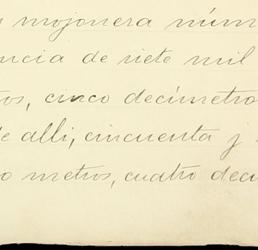 mojonera núm
ncia de siete mil
os, cinco decímetro
e alli, cincuenta y
o metros, cuatro deci